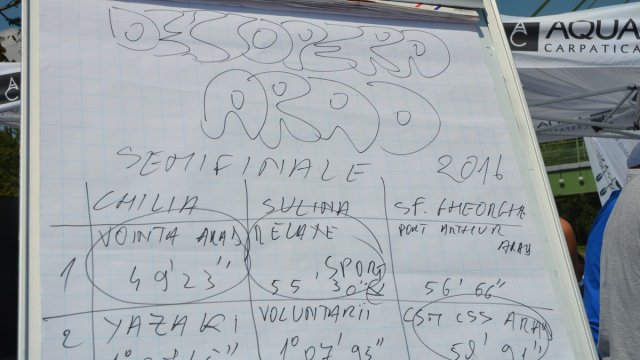 AQUA
CARPATICA
DESCOPERĂ
ARAD
SEMIFINALE 2016
CHILIA SULINA SF. GHEORGHE
1 VOINTA ARAD 49'23"
RELAXE SPORT 55'30"
PORT ARTHUR ARAD 56'66"
2 YAZAKI
VOLUNTARII 1°07'93"
CSM CSS ARAD 58'91"